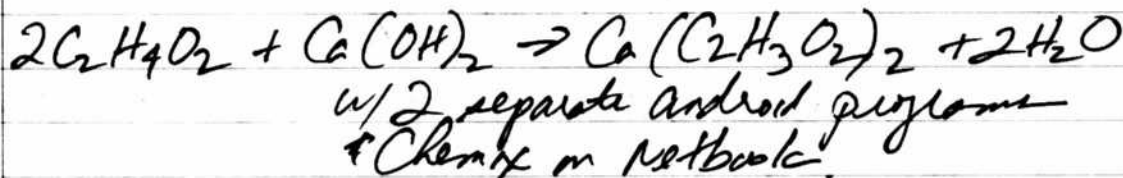 2C₂H₄O₂ + Ca(OH)₂ → Ca(C₂H₃O₂)₂ + 2H₂O
w/2 separate android programs
& Chemix on Netbook.